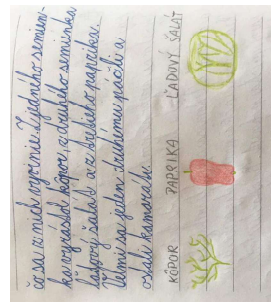 čo sa z nich vyvinie. Z jedného semien-
ka vyrástol kôpor z druhého semienka
ľadový šalát a z tretieho paprika.
Všimli sa jeden druhému páčili a
ostali kamaráti.
KÔPOR PAPRIKA ĽADOVÝ ŠALÁT